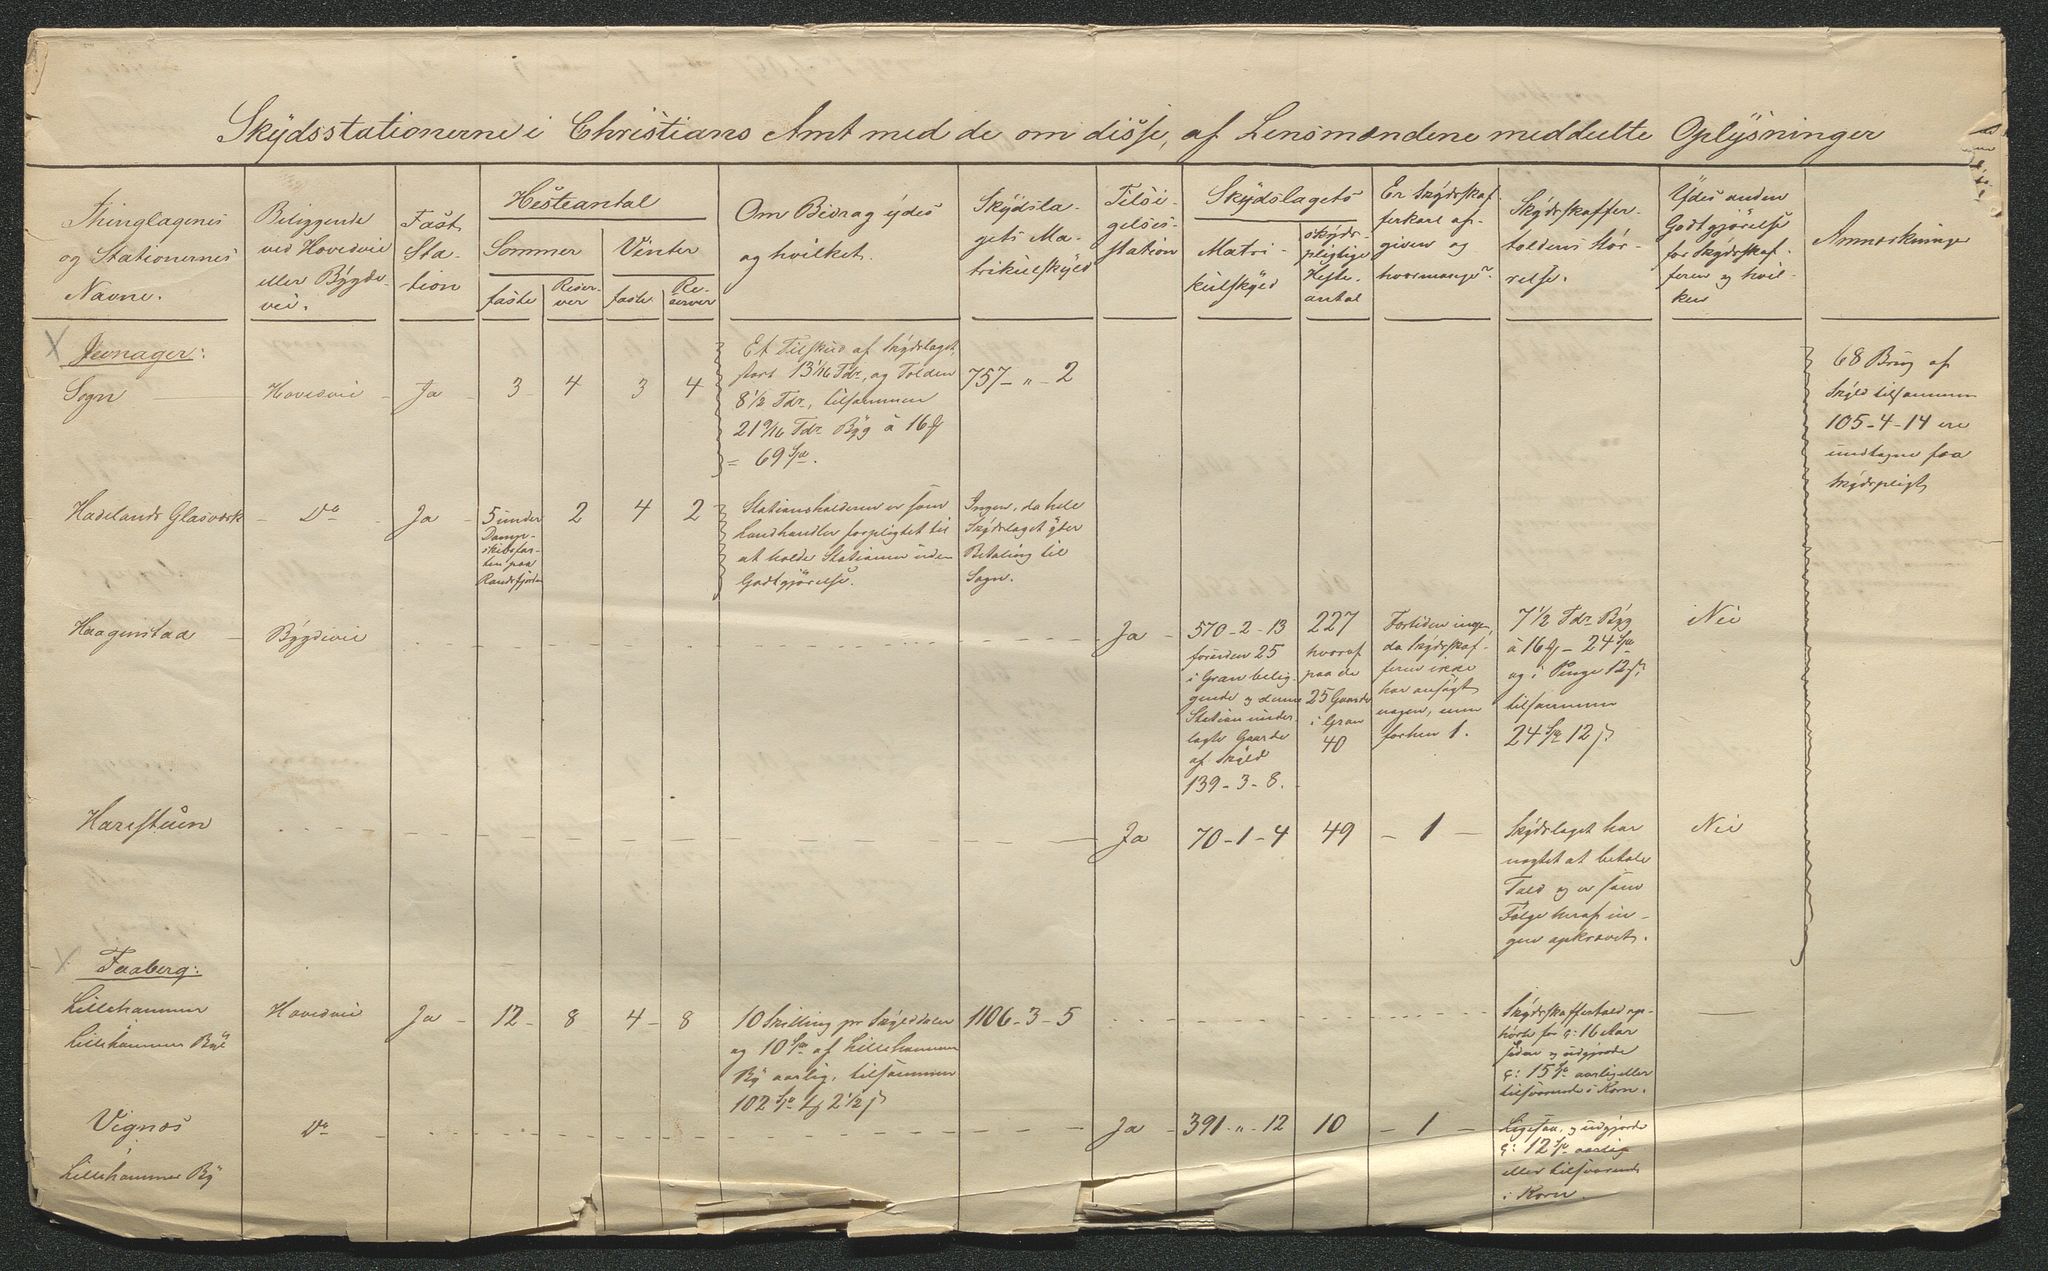 Skydsstationerne i Christians Amt med de om disse, af Lensmændene meddeelte Oplysninger
Thinglagenes
og Stationernes
Navne.
Beliggende
ved Hovedvei
eller Bygde-
vei.
Fast
Sta-
tion
Hesteantal
Sommer
Vinter
faste
Reser-
ver
faste
Re-
server
Om Bidrag ydes
og hvilket.
Skydsla-
gets Ma-
trikulskyld
Tilsi-
gelses-
station
Skydslagets
Matri-
kulskyld
skyds-
pligtige
Heste-
antal
Er Skydsskaf-
ferkarl af-
given og
hvormange?
Skydsskaffer-
toldens Stør-
relse.
Ydes anden
Godtgjörelse
for Skydsskaf-
feren og hvil-
ken
Anmærkninger
X Jevnager:
Sogn
Hovedvei
Ja
3
4
3
4
Et Tilskud af Skydslaget,
stort 13 1/16 Tdr, og Tolden
8 1/2 Tdr, tilsammen
21 9/16 Tdr Byg à 16
= 69 Spd.
757 - " - 2
68 Brug af
Skyld tilsammen
105-4-14 ere
undtagne fra
Skydspligt
Hadelands Glasværk
Do
Ja
5 under
Damp-
skibsfar-
ten paa
Randsfjorden
2
4
2
Stationsholderen er som
Landhandler forpligtet til
at holde Stationen uden
Godtgjörelse.
Ingen, da hele
Skydslaget yder
Betaling til
Sogn.
Haagenstad
Bygdevei
Ja
570-2-13
foruden 25
i Gran belig-
gende og denne
Station under-
lagte Gaarde
af Skyld
139-3-8.
227
hvoraf
paa de
25 Gaarde
i Gran
40
Fortiden ingen,
da Skydsskaf-
feren ikke
har ansøgt
nogen, men
forhen 1.
7 1/2 Tdr Byg
à 16 - 24 Spd
og i Penge 12 ß
tilsammen
24 Spd 12 ß
Nei
Harestuen
Ja
70-1-4
49
1
Skydslaget har
nægtet at betale
Told og er som
Følge heraf in-
gen opkrævet.
Nei
X Faaberg:
Lillehammer
Lillehammer Bye
Hovedvei
Ja
12
8
4
8
10 Skilling pr Skylddaler
og 10 Spd af Lillehammer
By aarlig, tilsammen
102 Spd 2 1/2 ß
1106-3-5
Skydsskaffertold op-
hørte for c: 16 Aar
siden og udgjorde
c: 15 Spd aarlig eller
tilsvarende i Korn.
Vignæs
Lillehammer By
Do
Ja
391 - " - 12
10
1
Ligesaa, og udgjorde
c: 12 Spd aarlig
eller tilsvarende
i Korn.